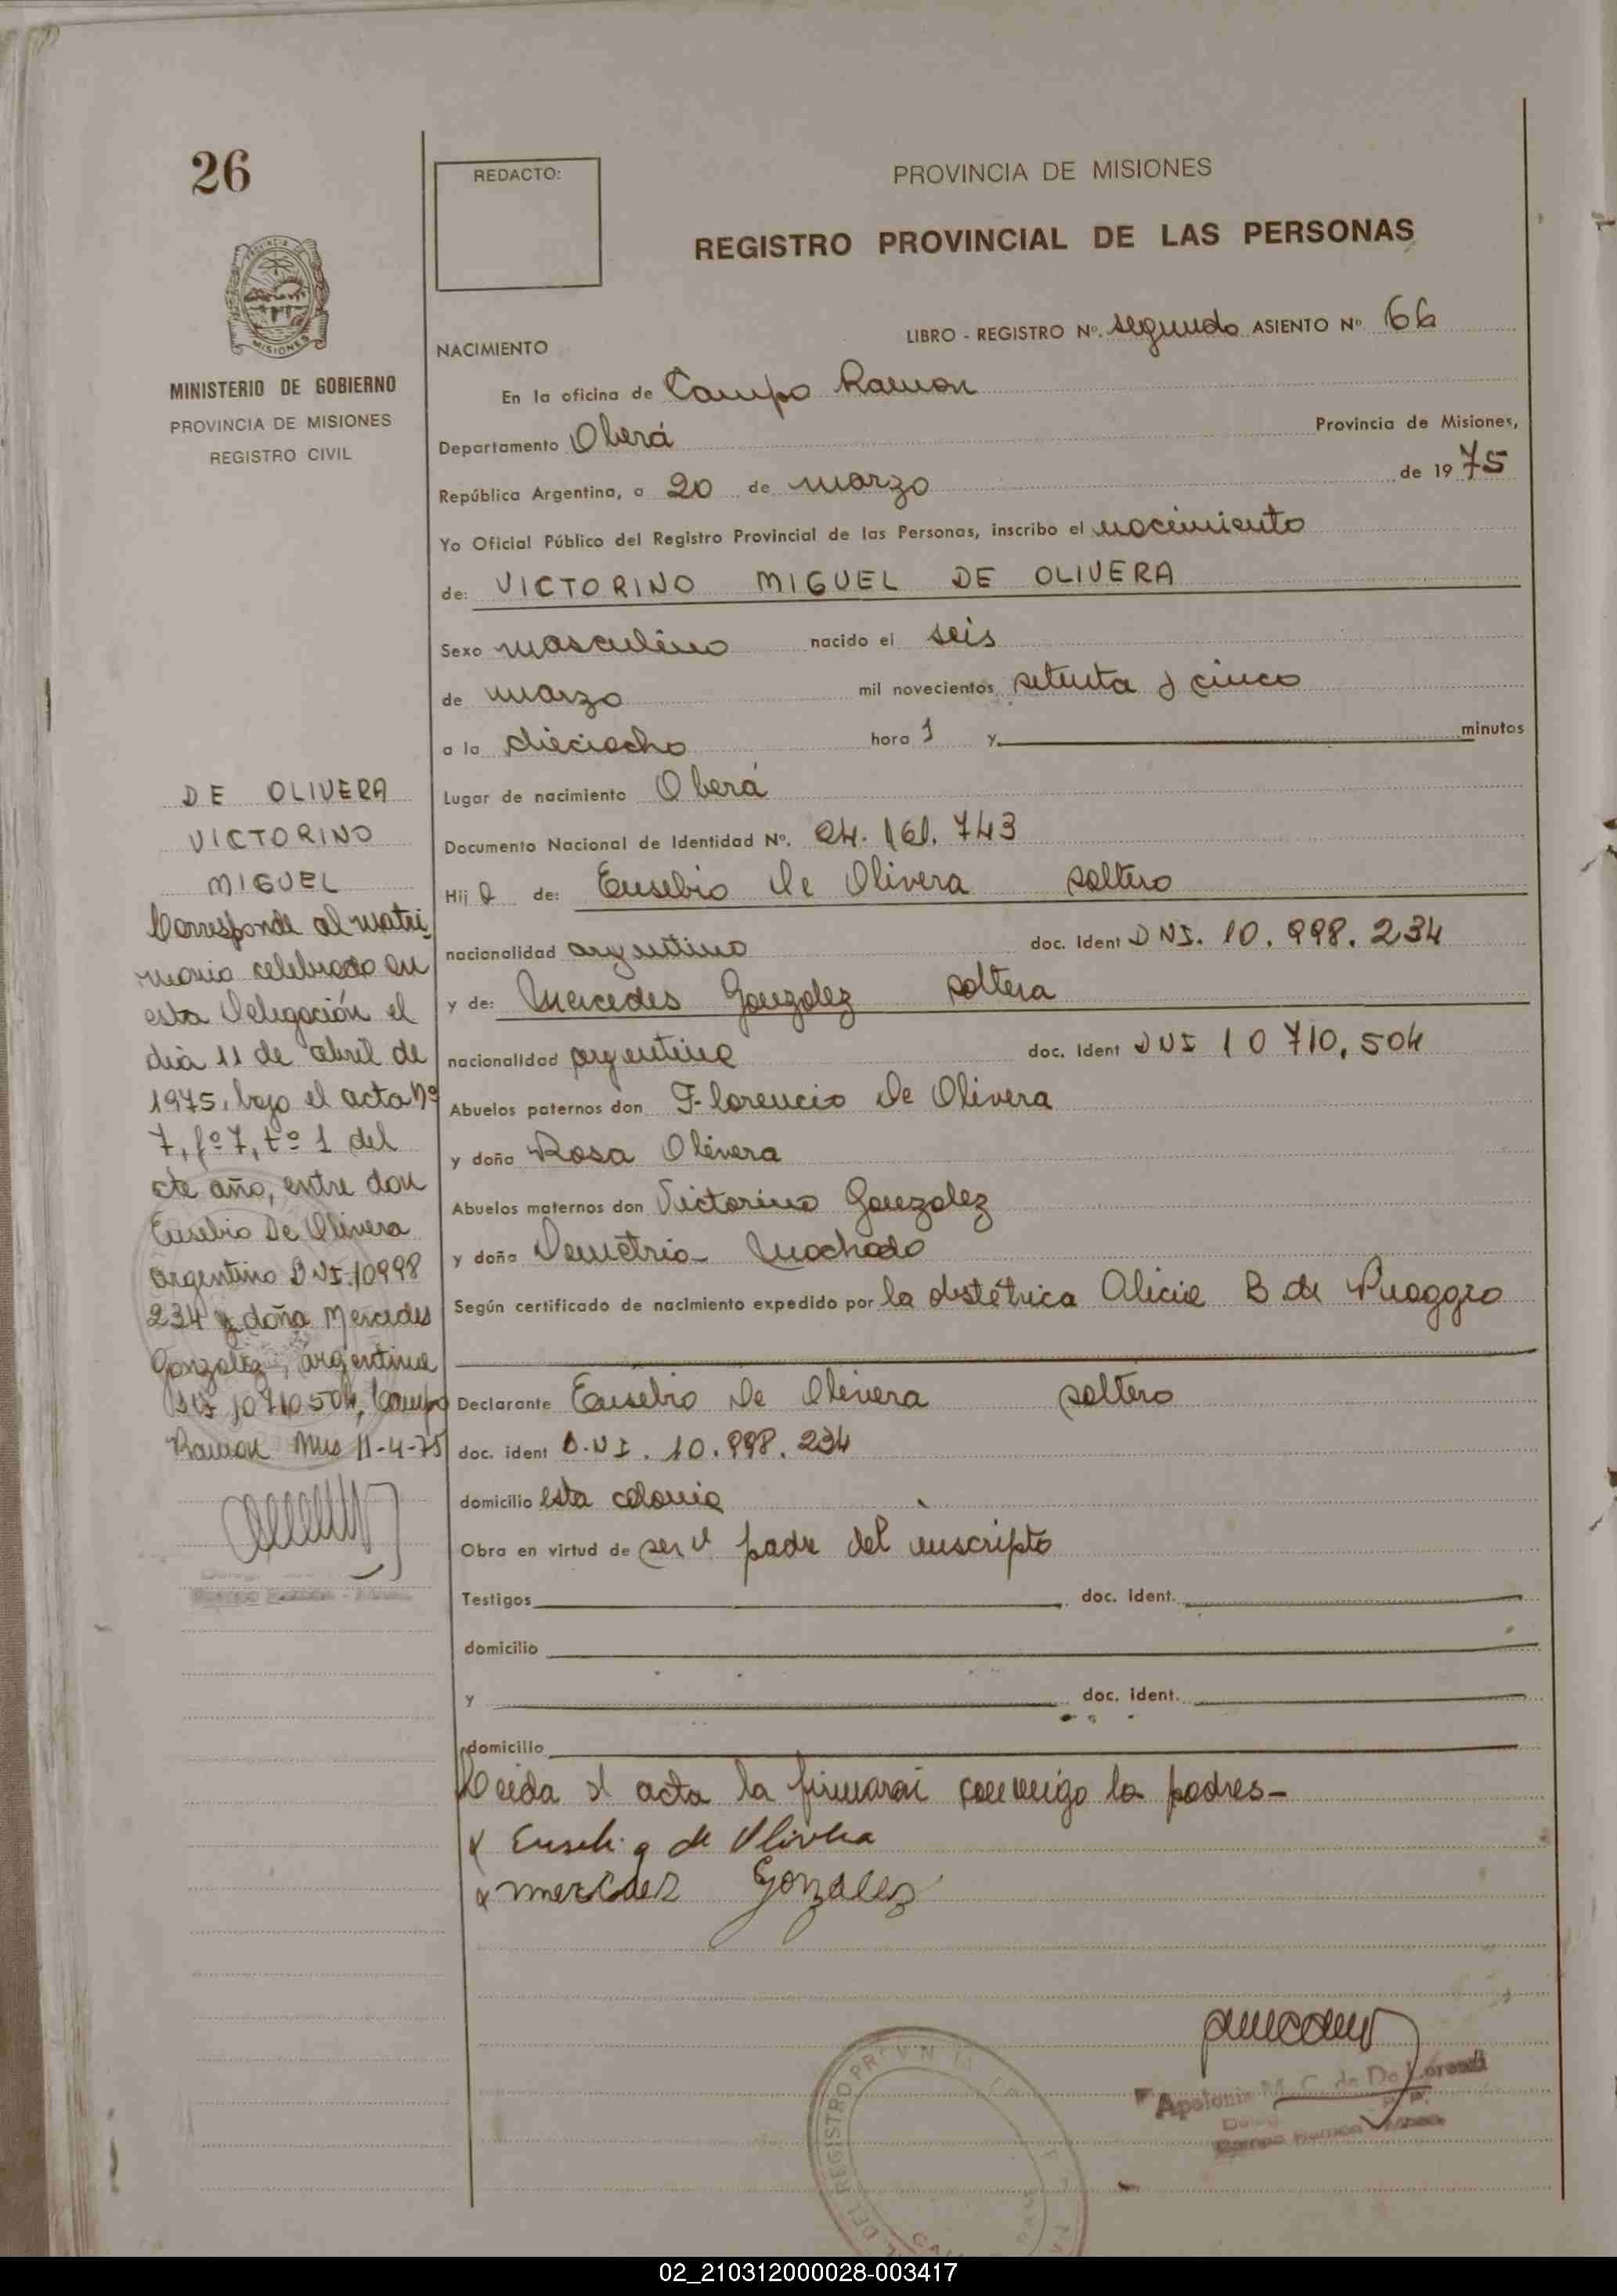 26
MINISTERIO DE GOBIERNO
PROVINCIA DE MISIONES
REGISTRO CIVIL
REDACTO:
PROVINCIA DE MISIONES
REGISTRO PROVINCIAL DE LAS PERSONAS
LIBRO - REGISTRO Nº. segundo ASIENTO Nº 66
NACIMIENTO
En la oficina de Campo Ramon
Departamento Oberá Provincia de Misiones,
República Argentina, a 20 de marzo de 1975
Yo Oficial Público del Registro Provincial de las Personas, inscribo el nacimiento
de: VICTORINO MIGUEL DE OLIVERA
Sexo masculino nacido el seis
de marzo mil novecientos setenta y cinco
a la dieciocho hora s y minutos
Lugar de nacimiento Oberá
Documento Nacional de Identidad Nº. 24.161.743
Hijo de: Eusebio De Olivera soltero
nacionalidad argentino doc. Ident DNI. 10.998.234
y de: Mercedes Gonzalez soltera
nacionalidad argentina doc. Ident DNI 10 710.504
Abuelos paternos don Florencio De Olivera
y doña Rosa Olivera
Abuelos maternos don Victorino Gonzalez
y doña Demetria Machado
Según certificado de nacimiento expedido por la obstétrica Alicia B de Puaggio
Declarante Eusebio De Olivera soltero
doc. ident D.N I. 10.998.234
domicilio esta colonia
Obra en virtud de ser el padre del inscripto
Testigos doc. Ident.
domicilio
y doc. ident.
domicilio
Leida el acta la firmaran conmigo los padres-
x Eusebio de Olivera
x mercdes Gonzalez
Apolonia M. C. de De Lorenzi
Campo Ramon
DE OLIVERA
VICTORINO
MIGUEL
Corresponde al matri-
monio celebrado en
esta Delegación el
dia 11 de abril de
1975, bajo el acta nº
7, fº 7, tº 1 del
cte año, entre don
Eusebio De Olivera
argentino DNI.10998
234 y doña Mercedes
Gonzalez, argentina
DNI 10710504, Campo
Ramon Mnes 11-4-75
02_210312000028-003417